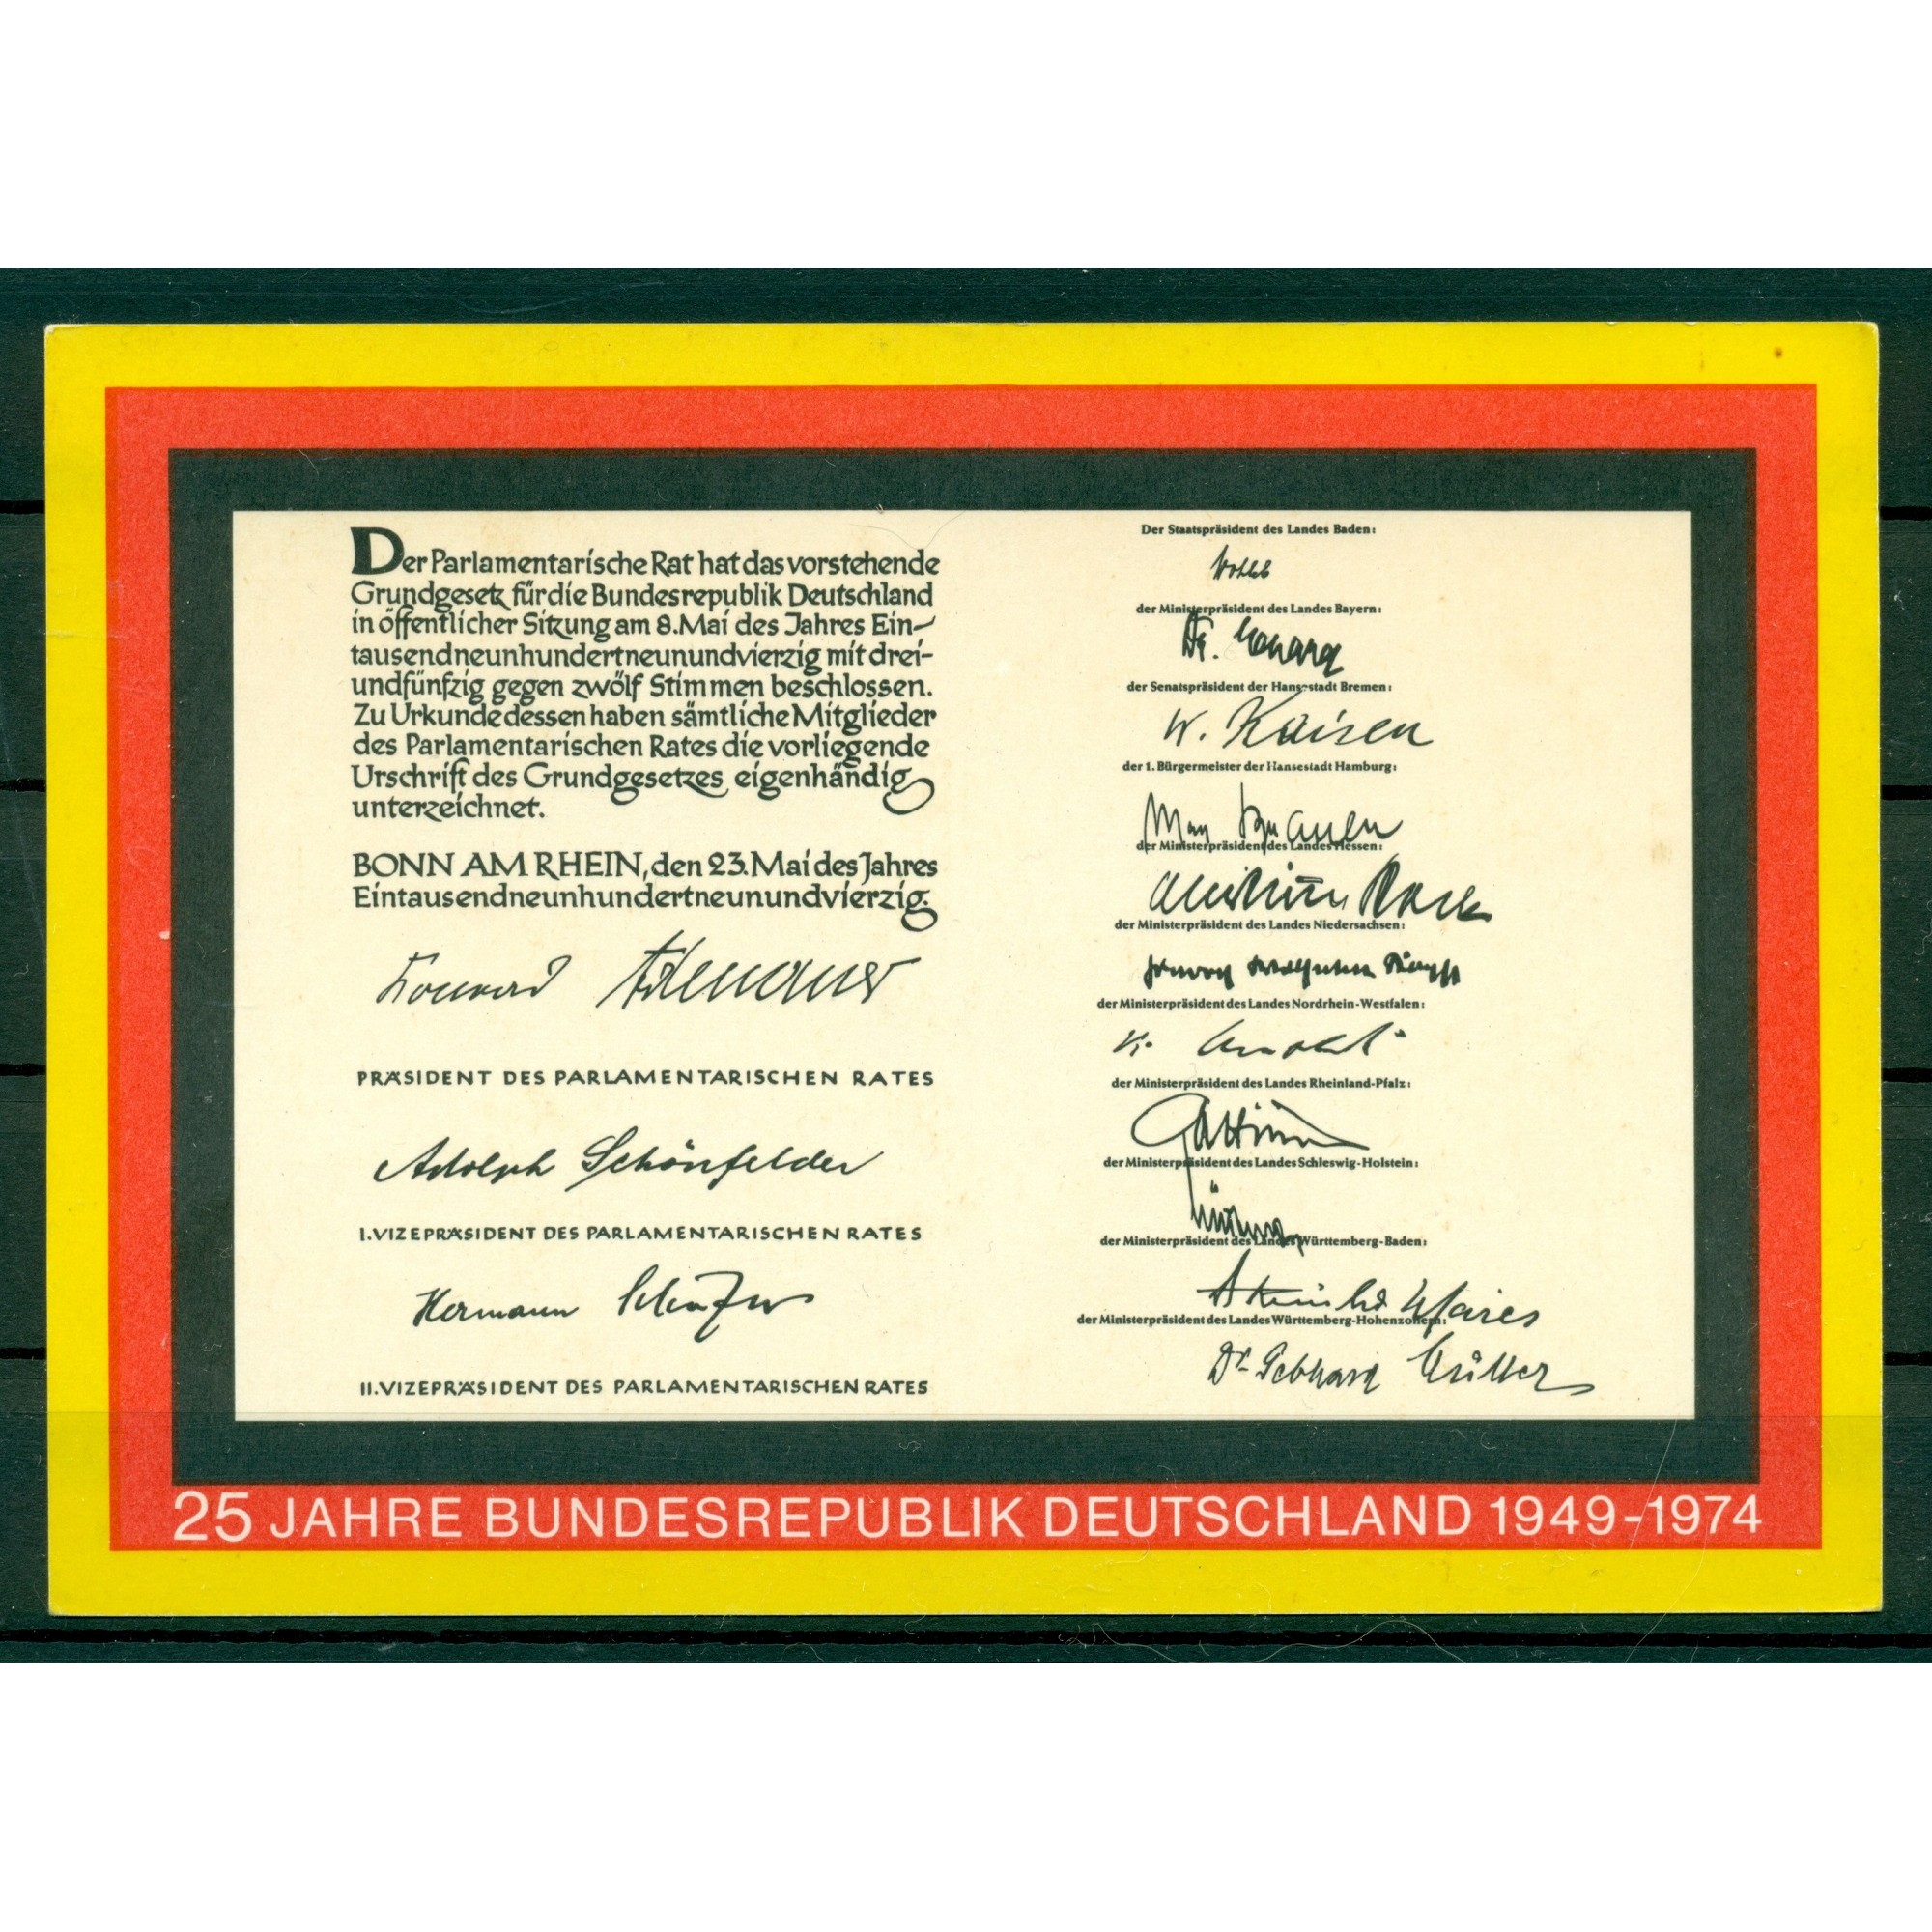 Der Parlamentarische Rat hat das vorstehende
Grundgesetz für die Bundesrepublik Deutschland
in öffentlicher Sitzung am 8. Mai des Jahres Ein-
tausendneunhundertneunundvierzig mit drei-
undfünfzig gegen zwölf Stimmen beschlossen.
Zu Urkunde dessen haben sämtliche Mitglieder
des Parlamentarischen Rates die vorliegende
Urschrift des Grundgesetzes eigenhändig
unterzeichnet.
BONN AM RHEIN, den 23. Mai des Jahres
Eintausendneunhundertneunundvierzig.
Konrad Adenauer
PRÄSIDENT DES PARLAMENTARISCHEN RATES
Adolph Schönfelder
I. VIZEPRÄSIDENT DES PARLAMENTARISCHEN RATES
Hermann Schäfer
II. VIZEPRÄSIDENT DES PARLAMENTARISCHEN RATES
Der Staatspräsident des Landes Baden:
Wohleb
der Ministerpräsident des Landes Bayern:
Dr. Ehard
der Senatspräsident der Hansestadt Bremen:
W. Kaisen
der 1. Bürgermeister der Hansestadt Hamburg:
Max Brauer
der Ministerpräsident des Landes Hessen:
Christian Stock
der Ministerpräsident des Landes Niedersachsen:
Hinrich Wilhelm Kopf
der Ministerpräsident des Landes Nordrhein-Westfalen:
K. Arnold
der Ministerpräsident des Landes Rheinland-Pfalz:
Altmeier
der Ministerpräsident des Landes Schleswig-Holstein:
Lüdemann
der Ministerpräsident des Landes Württemberg-Baden:
Reinhold Maier
der Ministerpräsident des Landes Württemberg-Hohenzollern:
Dr. Gebhard Müller
25 JAHRE BUNDESREPUBLIK DEUTSCHLAND 1949-1974